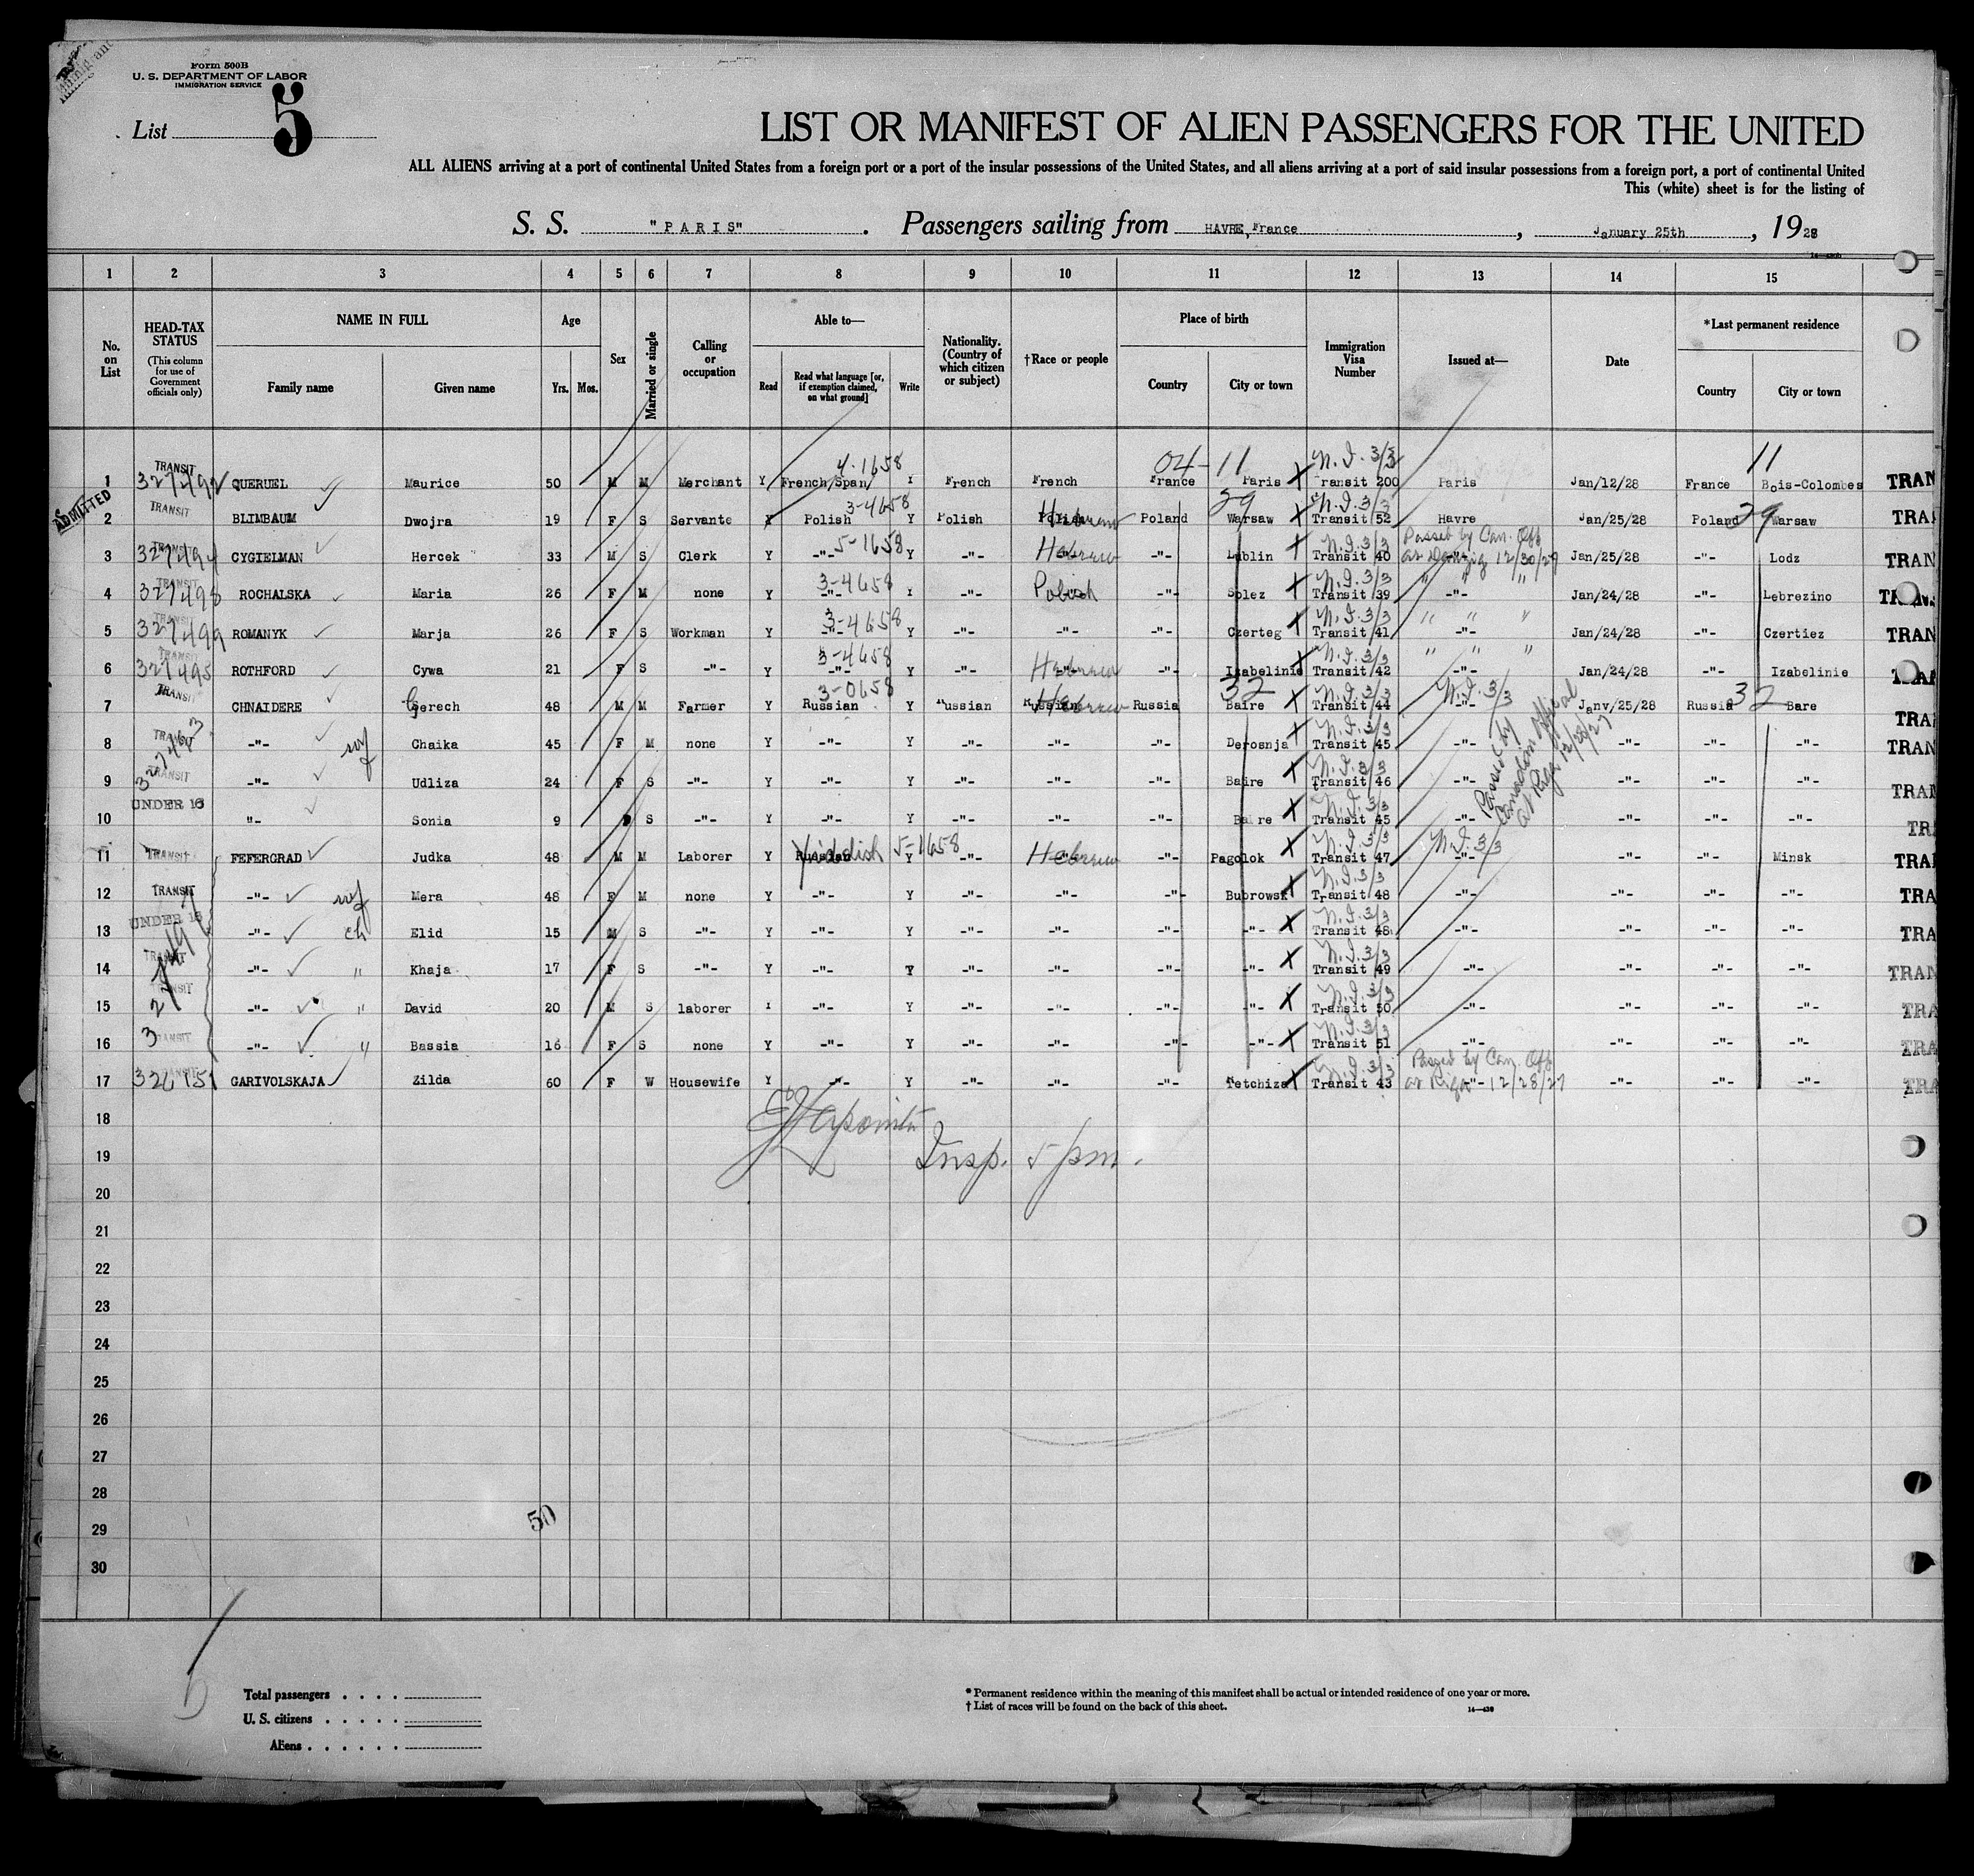 Form 500B
U. S. DEPARTMENT OF LABOR
IMMIGRATION SERVICE
List 5
LIST OR MANIFEST OF ALIEN PASSENGERS FOR THE UNITED
ALL ALIENS arriving at a port of continental United States from a foreign port or a port of the insular possessions of the United States, and all aliens arriving at a port of said insular possessions from a foreign port, a port of continental United
This (white) sheet is for the listing of
S. S. "PARIS". Passengers sailing from HAVRE, France, January 25th, 1928
1 2 3 4 5 6 7 8 9 10 11 12 13 14 15
No. on List
HEAD-TAX STATUS (This column for use of Government officials only)
NAME IN FULL Family name Given name
Age Yrs. Mos.
Sex
Married or single
Calling or occupation
Able to— Read Read what language [or, if exemption claimed, on what ground] Write
Nationality. (Country of which citizen or subject)
†Race or people
Place of birth Country City or town
Immigration Visa Number
Issued at—
Date
*Last permanent residence Country City or town
04-11 11
ADMITTED
1 TRANSIT 327492 QUERUEL Maurice 50 M M Merchant Y French/Span/ 4-1658 Y French French France Paris X N.I. 3/3 Transit 200 Paris Jan/12/28 France Bois-Colombes TRAN
2 TRANSIT BLIMBAUM Dwojra 19 F S Servante Y Polish 3-4658 Y Polish Hebrew Poland 29 Warsaw X N.I. 3/3 Transit 52 Havre Jan/25/28 Poland 29 Warsaw TRA
3 TRANSIT 327494 CYGIELMAN Hercek 33 M S Clerk Y -"- 5-1658 Y -"- Hebrew -"- Lublin X N.I. 3/3 Transit 40 Passed by Can. Off at Danzig 12/30/27 -"- Jan/25/28 -"- Lodz TRAN
4 TRANSIT 327498 ROCHALSKA Maria 26 F M none Y -"- 3-4658 Y -"- Polish -"- Solez X N.I. 3/3 Transit 39 " " " -"- Jan/24/28 -"- Lebrezino
5 TRANSIT 327499 ROMANYK Marja 26 F S Workman Y -"- 3-4658 Y -"- -"- -"- Czerteg X N.I. 3/3 Transit 41 " " " -"- Jan/24/28 -"- Czertiez TRAN
6 TRANSIT 327495 ROTHFORD Cywa 21 F S -"- Y -"- 3-4658 Y -"- Hebrew -"- Izabelinie X N.I. 3/3 Transit 42 " " " -"- Jan/24/28 -"- Izabelinie
7 TRANSIT CHNAIDERE Gerech 48 M M Farmer Y Russian 3-0658 Y Russian Hebrew Russia 32 Baire X N.I. 3/3 Transit 44 N.I. 3/3 -"- Janv/25/28 Russia 32 Bare TRA
8 TRANSIT -"- wf Chaika 45 F M none Y -"- Y -"- -"- -"- Derosnja X N.I. 3/3 Transit 45 -"- -"- -"- -"- TRAN
Passed by Canadian Official at Riga 12/28/27
9 TRANSIT -"- Udliza 24 F S -"- Y -"- Y -"- -"- -"- Baire X N.I. 3/3 Transit 46 -"- -"- -"- -"- TRAN
10 UNDER 16 "- Sonia 9 S -"- Y -"- Y -"- -"- -"- Baire X N.I. 3/3 Transit 45 -"- -"- -"- -"- TR
11 TRANSIT FEFERGRAD Judka 48 M M Laborer Y Yiddish 5-1658 Y -"- Hebrew -"- Pagolok X N.I. 3/3 Transit 47 N.I. 3/3 -"- -"- -"- Minsk TRA
12 TRANSIT -"- wf Mera 48 F M none Y -"- Y -"- -"- -"- Bubrowsk X N.I. 3/3 Transit 48 -"- -"- -"- -"- TRA
13 UNDER 16 -"- ch Elid 15 M S -"- Y -"- Y -"- -"- -"- -"- X N.I. 3/3 Transit 48 -"- -"- -"- -"- TRA
14 TRANSIT -"- " Khaja 17 F S -"- Y -"- Y -"- -"- -"- -"- X N.I. 3/3 Transit 49 -"- -"- -"- -"- TRAN
15 TRANSIT -"- " David 20 M S laborer Y -"- Y -"- -"- -"- -"- X N.I. 3/3 Transit 50 -"- -"- -"- -"- TRA
16 TRANSIT -"- " Bassia 16 F S none Y -"- Y -"- -"- -"- -"- X N.I. 3/3 Transit 51 -"- -"- -"- -"- TRA
17 TRANSIT GARIVOLSKAJA Zilda 60 F W Housewife Y -"- Y -"- -"- -"- Tetchiza X N.I. 3/3 Transit 43 Passed by Can. Off at Riga 12/28/27 -"- -"- -"- -"- TRA
18
19 Insp. 5 pm.
20
21
22
23
24
25
26
27
28
29 50
30
Total passengers . . . .
U. S. citizens . . . . .
Aliens . . . . . .
* Permanent residence within the meaning of this manifest shall be actual or intended residence of one year or more.
† List of races will be found on the back of this sheet.
14—430